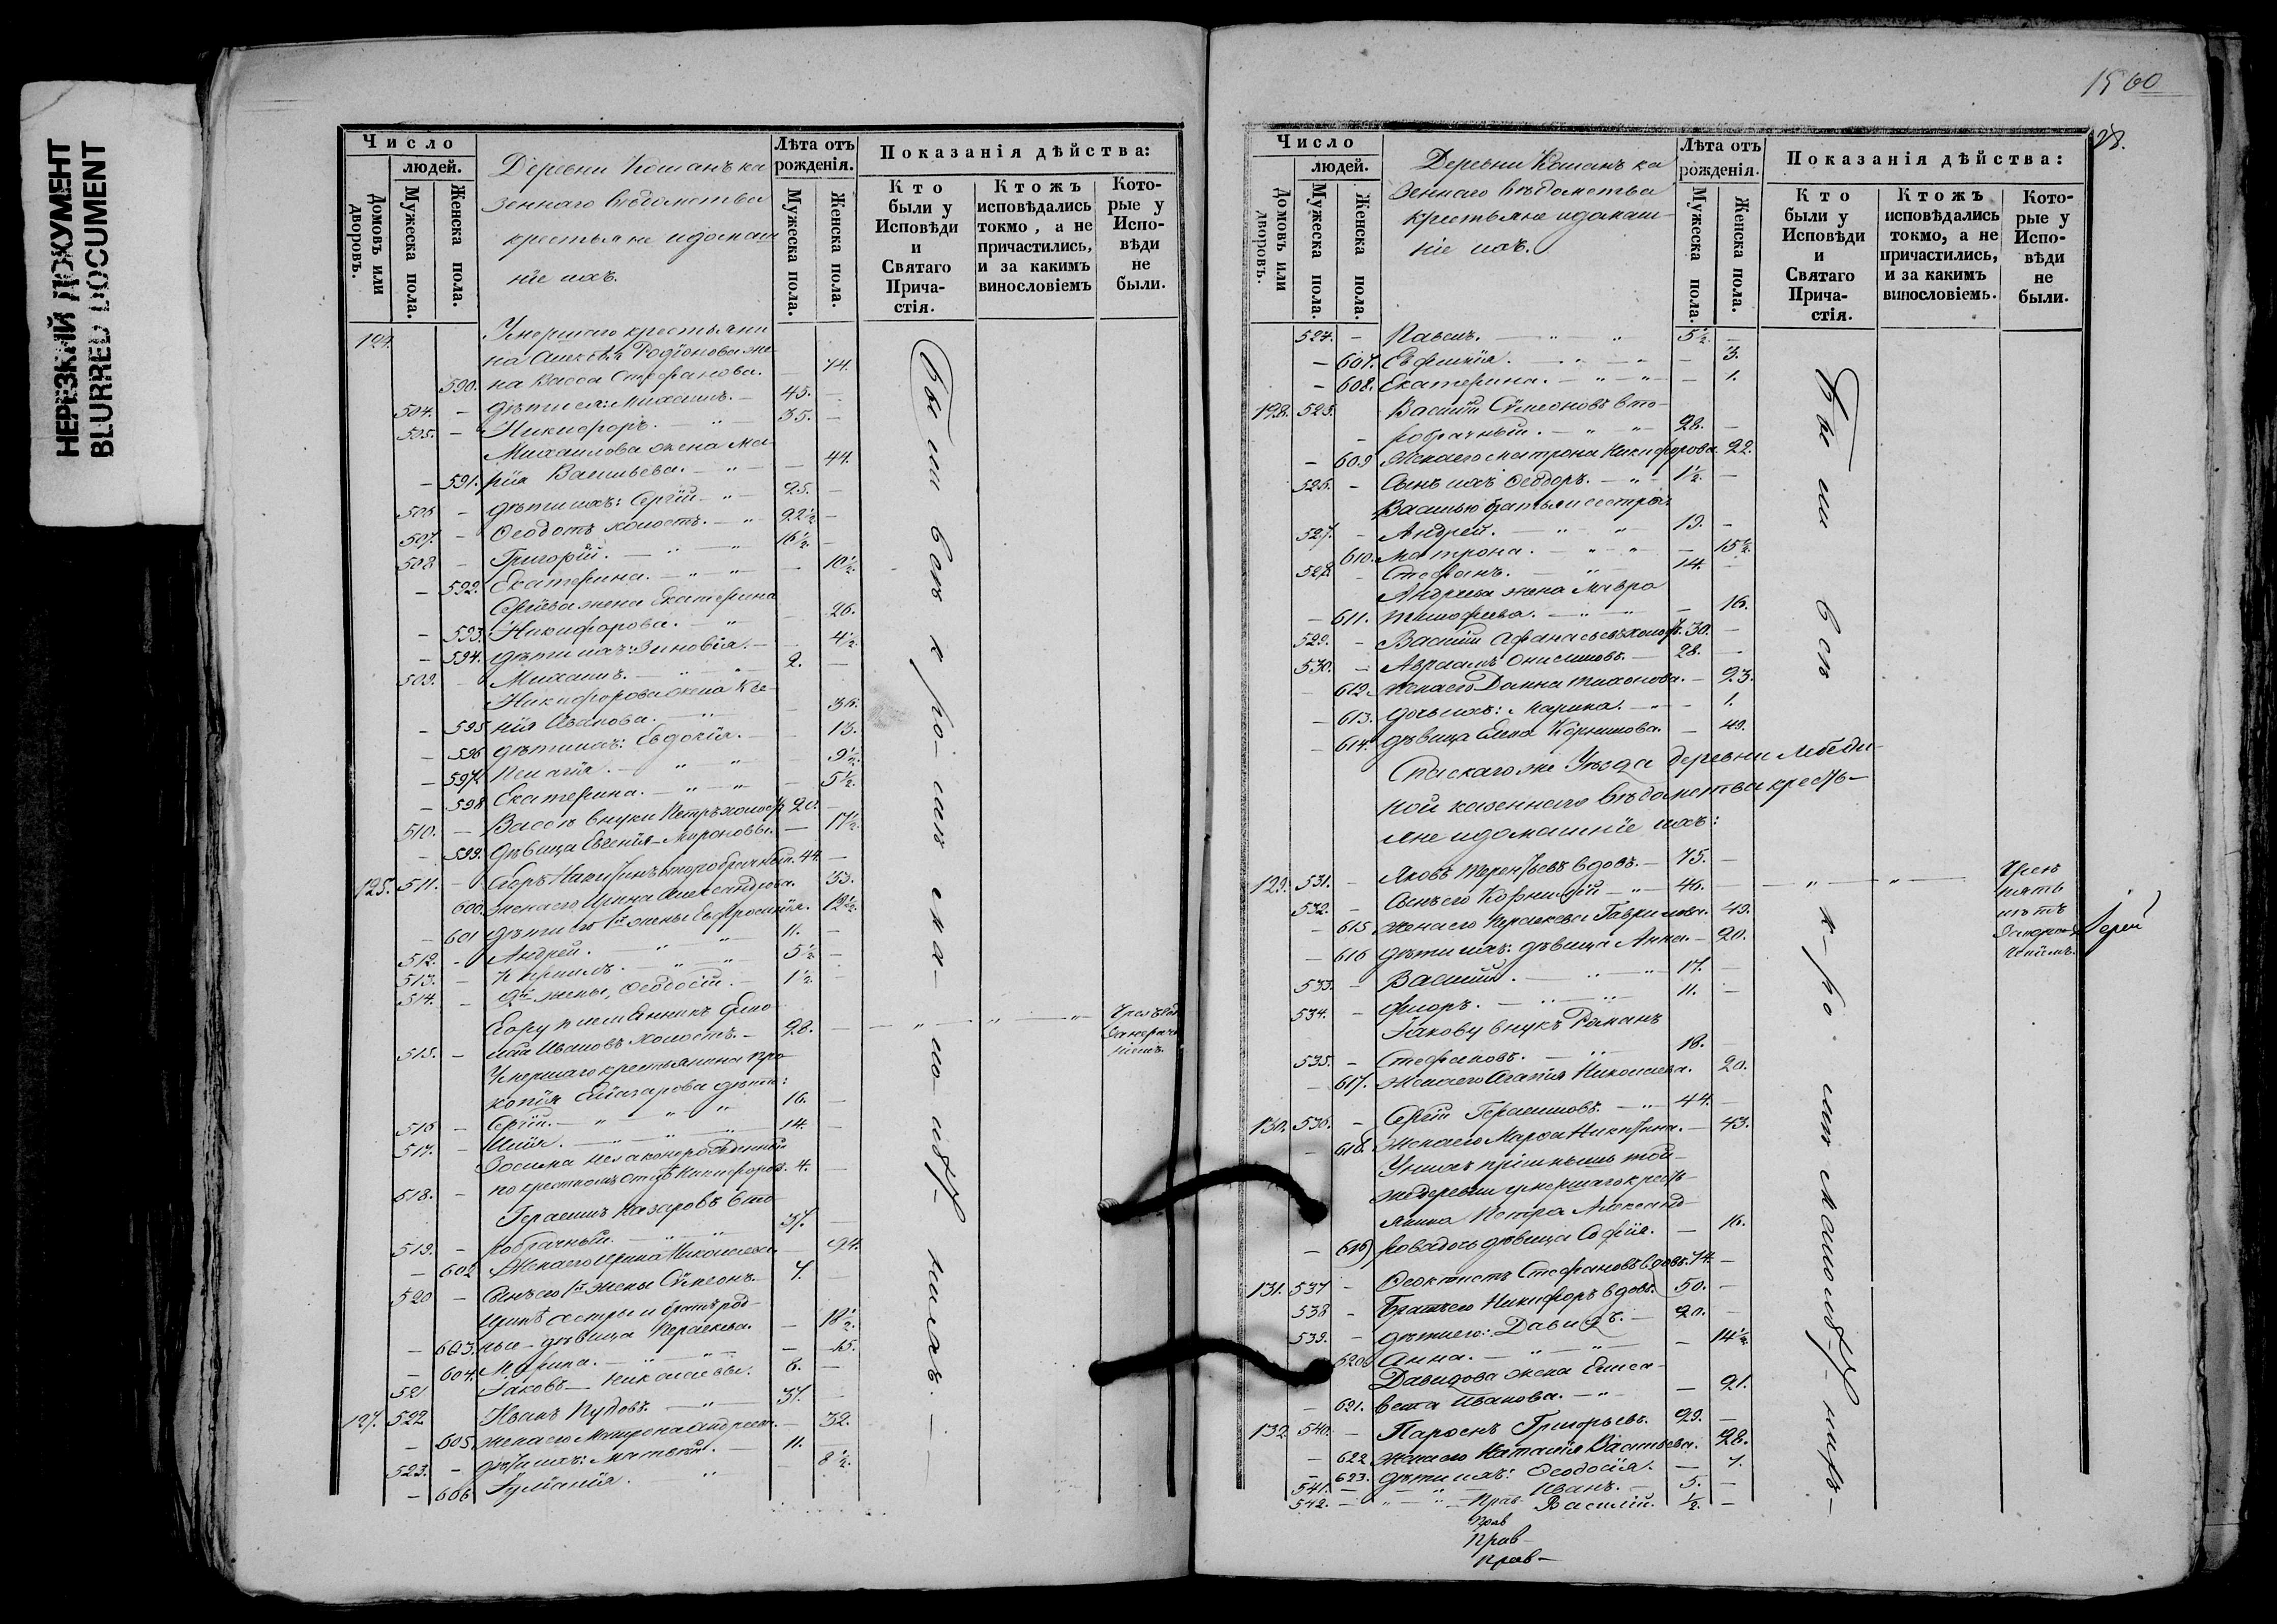 НЕРЕЗКИЙ ДОКУМЕНТ
BLURRED DOCUMENT
Число
людей.
Домовъ или дворовъ.
Мужеска пола.
Женска пола.
Деревни Кошанъ ка
зеннаго вѣдомства
крестьяне и домаш
ніе ихъ.
Лѣта отъ рожденія.
Мужеска пола.
Женска пола.
Показанія дѣйства:
Кто были у Исповѣди и Святаго Прича-стія.
Ктожъ исповѣдались токмо, а не причастились, и за какимъ винословіемъ
Кото-рые у Испо-вѣди не были.
124. Умершаго крестьяни
на Алексѣя Родіонова же-
590. на Васса Стефанова. 74.
504. дѣти ея: Михаилъ. 45.
505. Никифоръ. 35.
Михаилова жена Ма-
591. рія Васильева. 44.
506 дѣти ихъ: Сергій 25.
507. Ѳеодотъ холостъ. 22½
508 Григорій. 16½.
592. Екатерина. 10½.
Сергіева жена Екатерина
593. Никифорова. 26.
594. дѣти ихъ: Зиновія. 4½.
509. Михаилъ. 2.
Никифорова жена Ксе-
595 нія Иванова. 36.
596 дѣти ихъ: Евдокія. 13.
597. Пелагія. 9½.
598 Екатерина. 5½.
510. Вассѣ внуки Петръ холостъ 20.
599. дѣвица Евгенія Мироновы. 17½.
125. 511. Егоръ Никитинъ второбрачный. 44.
600. жена его Ирина Александрова. 33.
601 дѣти его 1й жены Евфросинія. 12½.
512. Андрей. 11.
513. Кириллъ. 5½
514. 2й жены, Ѳеодосій. 1½.
Егору племянникъ Ермо
515. лай Ивановъ холостъ. 28.
Умершаго крестьянина Про
копія Елизарова дѣти:
516 Сергій. 16.
517. Илія. 14.
Зосима незаконорожденный
518. по крестномъ отцѣ Никифоровъ. 4.
Герасимъ Назаровъ вто
519. робрачный. 37.
602 Жена его Ирина Николаева. 24.
520 Сынъ его 1й жены Сѵмеонъ. 7.
Иринѣ сестры и братъ род-
603. ные дѣвица Параскева. 18½.
604. Марина. 15.
521 Іаковъ Николаевы. 6.
127. 522 Иванъ Пудовъ. 37.
605. жена его Матрона Андреева. 32.
523. дѣти ихъ: Матвѣй. 11.
606 Іуліанія. 8½.
Были всѣ
1560
28.
Число
людей.
Домовъ или дворовъ.
Мужеска пола.
Женска пола.
Деревни Кошанъ ка
зеннаго вѣдомства
крестьяне и домаш-
ніе ихъ.
Лѣта отъ рожденія.
Мужеска пола.
Женска пола.
Показанія дѣйства:
Кто были у Исповѣди и Святаго Прича-стія.
Ктожъ исповѣдались токмо, а не причастились, и за какимъ винословіемъ.
Кото-рые у Испо-вѣди не были.
524. Павелъ. 5½.
607. Евфимія. 3.
608. Екатерина. 1.
128. 525. Василій Сѵмеоновъ вто-
робрачный. 28.
609 Жена его Матрона Никифорова 22.
526. Сынъ ихъ Ѳеодоръ. 1½.
Василью братья и сестра:
527. Андрей. 19.
610. Матрона. 15½.
528. Стефанъ. 14.
Андреева жена Мавра
611. Тимофеева. 16.
529. Василій Афанасьевъ холостъ. 30.
530. Авраамъ Онисимовъ. 28.
612. жена его Домна Тихонова. 23.
613. дочь ихъ: Марина. 1.
614. дѣвица Елена Корнилова. 49.
Спаскаго же Уѣзда деревни Лебеди-
ной казеннаго вѣдомства кресть-
яне и домашніе ихъ:
129. 531. Яковъ Терентьевъ вдовъ. 75.
532. Сынъ его Корнилій 46.
615 жена его Праскева Гаврилова. 49.
616 дѣти ихъ: дѣвица Анна. 20.
533. Василій. 17.
534. Флоръ. 11.
Іакову внукъ Романъ
535. Стефановъ. 18.
617. жена его Агапія Николаева. 20.
130. 536. Сергій Герасимовъ. 44.
618. Жена его Марфа Никитина. 43.
У нихъ пріимышъ той-
же деревни умершаго кресть-
янина Петра Александ-
619) рова дочь дѣвица Софія. 16.
131. 537 Ѳеоктистъ Стефановъ вдовъ. 74.
538 Братъ его Никифоръ вдовъ. 50.
539. дѣти его: Давидъ. 20.
620. Анна. 14½.
Давидова жена Елиса-
621. вета Иванова. 21.
132 540. Парѳенъ Григорьевъ. 29.
622 Жена его Наталія Васильева. 28.
623. дѣти ихъ: Ѳеодосія. 7.
541. Иванъ. 5.
542. Василій. ½.
Были всѣ
Чрезъ
пять
лѣтъ
Іерей
Прав
Прав
Прав
Прав-